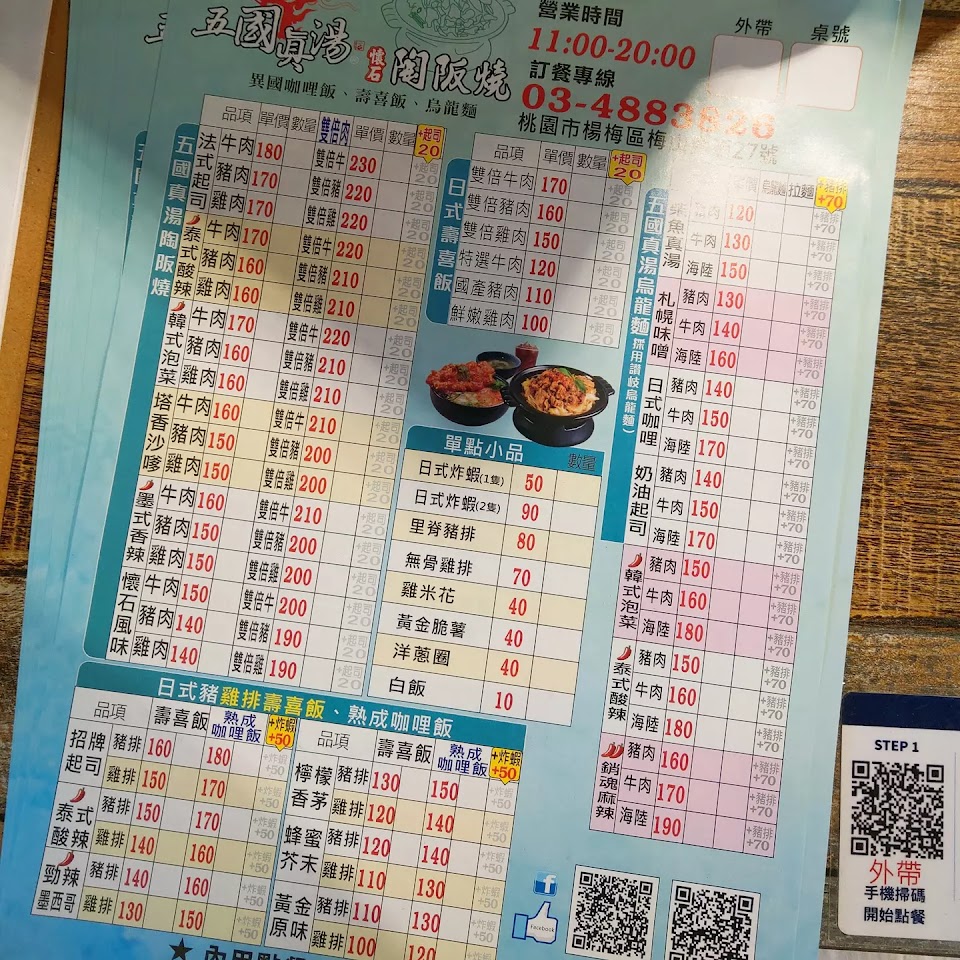 五國真湯
懷石
陶阪燒
異國咖哩飯、壽喜飯、烏龍麵
營業時間
11:00-20:00
訂餐專線
03-4883826
桃園市楊梅區梅
27號
外帶
桌號
五國真湯陶阪燒
品項 單價 數量 雙倍肉 單價 數量 +起司20
法式起司
牛肉 180 雙倍牛 230 +起司20
豬肉 170 雙倍豬 220 +起司20
雞肉 170 雙倍雞 220 +起司20
泰式酸辣
牛肉 170 雙倍牛 220 +起司20
豬肉 160 雙倍豬 210 +起司20
雞肉 160 雙倍雞 210 +起司20
韓式泡菜
牛肉 170 雙倍牛 220 +起司20
豬肉 160 雙倍豬 210 +起司20
雞肉 160 雙倍雞 210 +起司20
塔香沙嗲
牛肉 160 雙倍牛 210 +起司20
豬肉 150 雙倍豬 200 +起司20
雞肉 150 雙倍雞 200 +起司20
墨式香辣
牛肉 160 雙倍牛 210 +起司20
豬肉 150 雙倍豬 200 +起司20
雞肉 150 雙倍雞 200 +起司20
懷石風味
牛肉 150 雙倍牛 200 +起司20
豬肉 140 雙倍豬 190 +起司20
雞肉 140 雙倍雞 190 +起司20
日式壽喜飯
品項 單價 數量 +起司20
雙倍牛肉 170 +起司20
雙倍豬肉 160 +起司20
雙倍雞肉 150 +起司20
特選牛肉 120 +起司20
國產豬肉 110 +起司20
鮮嫩雞肉 100 +起司20
單點小品 數量
日式炸蝦(1隻) 50
日式炸蝦(2隻) 90
里脊豬排 80
無骨雞排 70
雞米花 40
黃金脆薯 40
洋蔥圈 40
白飯 10
五國真湯烏龍麵(採用讚岐烏龍麵)
烏龍麵 拉麵 +豬排+70
柴魚真湯
豬肉 120 +豬排+70
牛肉 130 +豬排+70
海陸 150 +豬排+70
札幌味噌
豬肉 130 +豬排+70
牛肉 140 +豬排+70
海陸 160 +豬排+70
日式咖哩
豬肉 140 +豬排+70
牛肉 150 +豬排+70
海陸 170 +豬排+70
奶油起司
豬肉 140 +豬排+70
牛肉 150 +豬排+70
海陸 170 +豬排+70
韓式泡菜
豬肉 150 +豬排+70
牛肉 160 +豬排+70
海陸 180 +豬排+70
泰式酸辣
豬肉 150 +豬排+70
牛肉 160 +豬排+70
海陸 180 +豬排+70
銷魂麻辣
豬肉 160 +豬排+70
牛肉 170 +豬排+70
海陸 190 +豬排+70
日式豬雞排壽喜飯、熟成咖哩飯
品項 壽喜飯 熟成咖哩飯 +炸蝦+50
招牌起司
豬排 160 180 +炸蝦+50
雞排 150 170 +炸蝦+50
泰式酸辣
豬排 150 170 +炸蝦+50
雞排 140 160 +炸蝦+50
勁辣墨西哥
豬排 140 160 +炸蝦+50
雞排 130 150 +炸蝦+50
品項 壽喜飯 熟成咖哩飯 +炸蝦+50
檸檬香茅
豬排 130 150 +炸蝦+50
雞排 120 140 +炸蝦+50
蜂蜜芥末
豬排 120 140 +炸蝦+50
雞排 110 130 +炸蝦+50
黃金原味
豬排 110 130 +炸蝦+50
雞排 100 120 +炸蝦+50
Facebook
STEP 1
外帶
手機掃碼
開始點餐